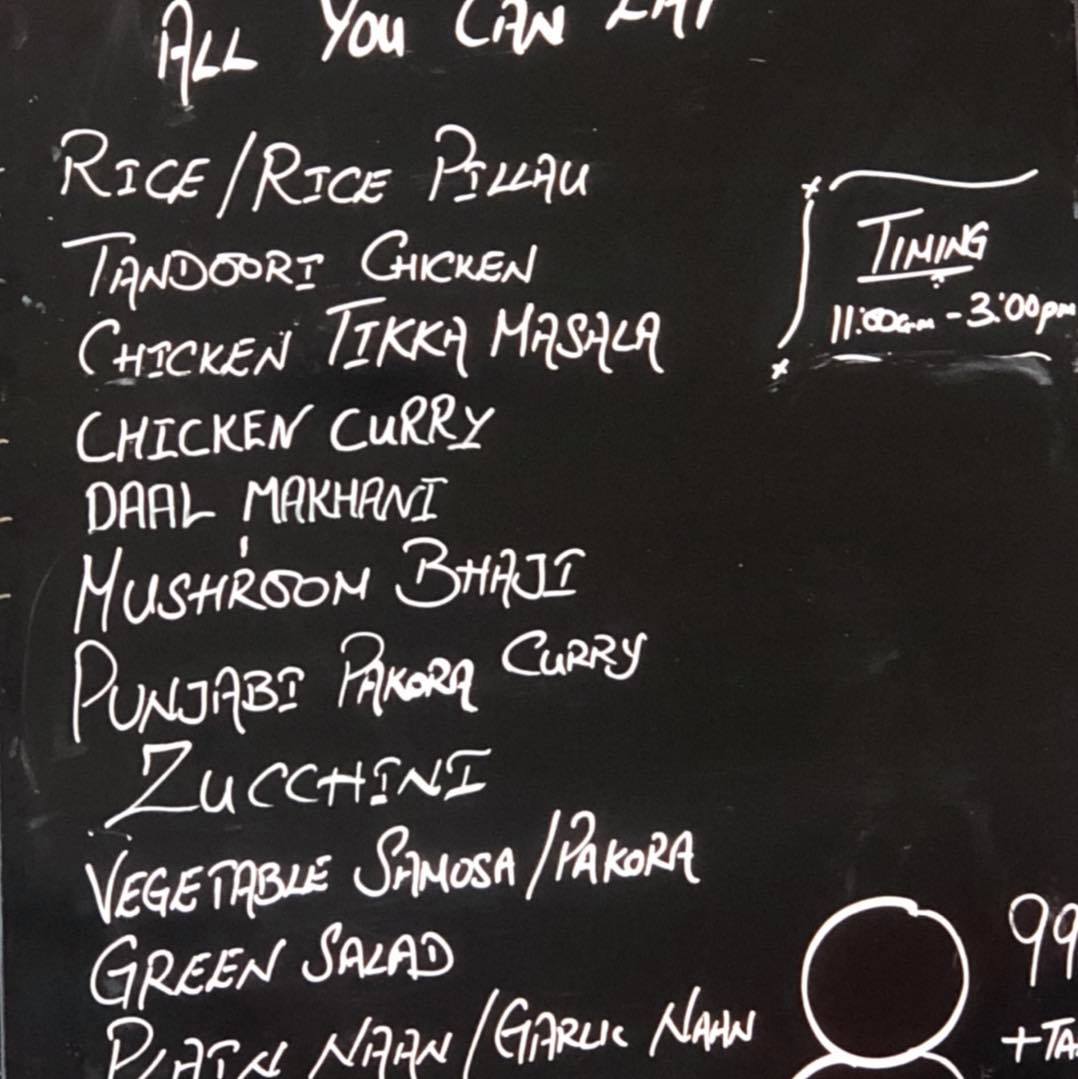 ALL YOU CAN EAT
RICE/RICE PILLAU
TANDOORI CHICKEN
CHICKEN TIKKA MASALA
CHICKEN CURRY
DAAL MAKHANI
MUSHROOM BHAJI
PUNJABI PAKORA CURRY
ZUCCHINI
VEGETABLE SAMOSA/PAKORA
GREEN SALAD
PLAIN NAAN/GARLIC NAAN
TIMING
11:00am - 3:00pm
99
+TA